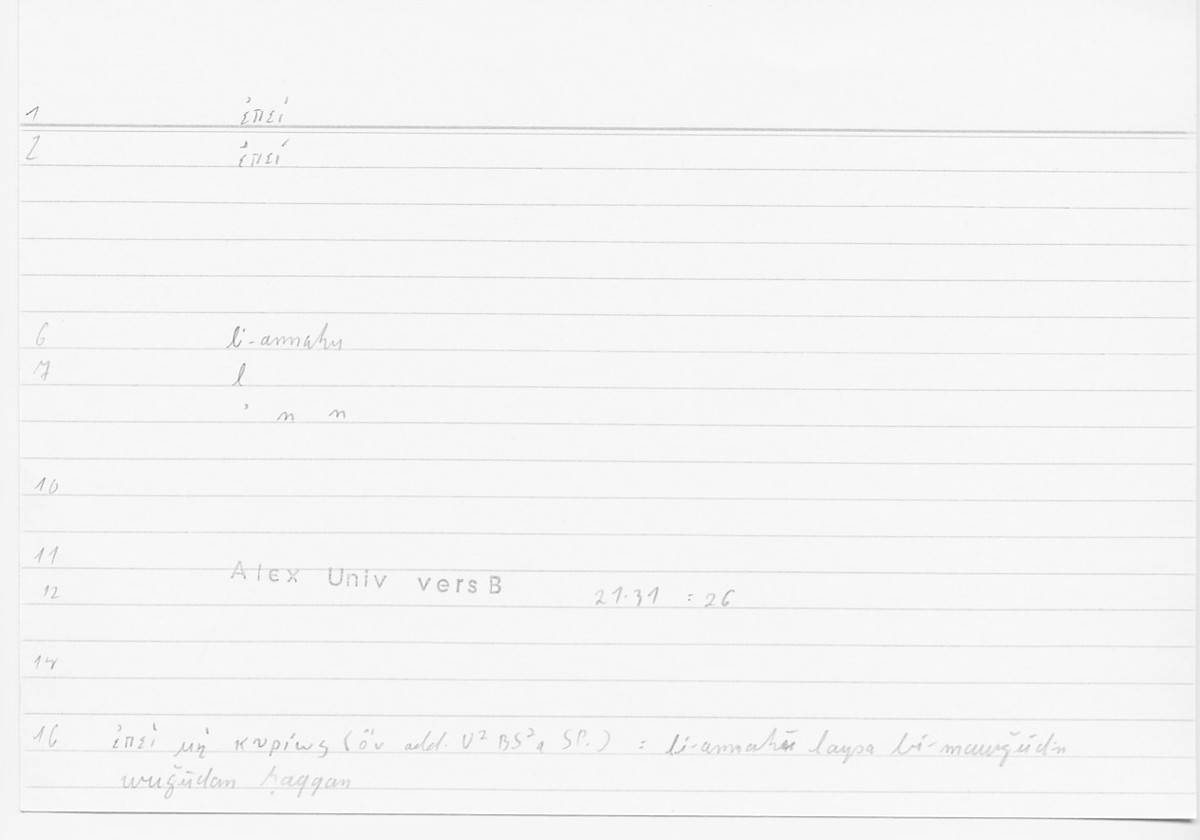 1 ἐπεί
2 ἐπεί
6 li-annahu
7 l
ʾ n n
10
11
Alex Univ vers B
12 21.31 : 26
14
16 ἐπεὶ μὴ κυρίως (ὄν add. V² BS²a SP.) = li-annahū laysa bi-mawǧūdin
wuǧūdan ḥaqqan